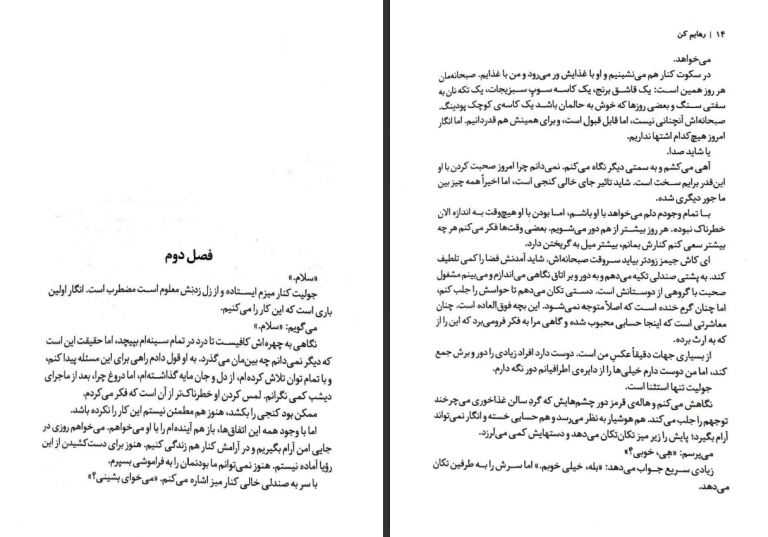 فصل دوم
«سلام.»
جولیت کنار میزم ایستاده و از زل زدنش معلوم است مضطرب است. انگار اولین
باری است که این کار را می‌کنیم.
می‌گویم: «سلام.»
نگاهی به چهره‌اش کافیست تا درد در تمام سینه‌ام بپیچد، اما حقیقت این است
که دیگر نمی‌دانم چه بین‌مان می‌گذرد. به او قول دادم راهی برای این مسئله پیدا کنم،
و با تمام توان تلاش کرده‌ام، از دل و جان مایه گذاشته‌ام، اما دروغ چرا، بعد از ماجرای
دیشب کمی نگرانم. لمس کردن او خطرناک‌تر از آن است که فکر می‌کردم.
ممکن بود کنجی را بکشد، هنوز هم مطمئن نیستم این کار را نکرده باشد.
اما با وجود همه این اتفاق‌ها، باز هم آینده‌ام را با او می‌خواهم. می‌خواهم روزی در
جایی امن آرام بگیریم و در آرامش کنار هم زندگی کنیم. هنوز برای دست‌کشیدن از این
رؤیا آماده نیستم. هنوز نمی‌توانم ما بودنمان را به فراموشی بسپرم.
با سر به صندلی خالی کنار میز اشاره می‌کنم. «می‌خوای بشینی؟»
۱۴ | رهایم کن
می‌خواهد.
در سکوت کنار هم می‌نشینیم و او با غذایش ور می‌رود و من با غذایم. صبحانه‌مان
هر روز همین است: یک قاشق برنج، یک کاسه سوپ سبزیجات، یک تکه نان به
سفتی سنگ و بعضی روزها که خوش به حالمان باشد یک کاسه‌ی کوچک پودینگ.
صبحانه‌اش آنچنانی نیست، اما قابل قبول است، و برای همینش هم قدردانیم. اما انگار
امروز هیچ‌کدام اشتها نداریم.
یا شاید صدا.
آهی می‌کشم و به سمتی دیگر نگاه می‌کنم. نمی‌دانم چرا امروز صحبت کردن با او
این‌قدر برایم سخت است. شاید تاثیر جای خالی کنجی است، اما اخیراً همه چیز بین
ما جور دیگری شده.
با تمام وجودم دلم می‌خواهد با او باشم، اما بودن با او هیچ‌وقت به اندازه الان
خطرناک نبوده. هر روز بیشتر از هم دور می‌شویم. بعضی وقت‌ها فکر می‌کنم هر چه
بیشتر سعی کنم کنارش بمانم، بیشتر میل به گریختن دارد.
ای کاش جیمز زودتر بیاید سروقت صبحانه‌اش. شاید آمدنش فضا را کمی تلطیف
کند. به پشتی صندلی تکیه می‌دهم و به دور و بر اتاق نگاهی می‌اندازم و می‌بینم مشغول
صحبت با گروهی از دوستانش است. دستی تکان می‌دهم تا حواسش را جلب کنم،
اما چنان گرم خنده است که اصلاً متوجه نمی‌شود. این بچه فوق‌العاده است. چنان
معاشرتی است که اینجا حسابی محبوب شده و گاهی مرا به فکر فرومی‌برد که این را از
که به ارث برده.
از بسیاری جهات دقیقاً عکسِ من است. دوست دارد افراد زیادی را دور و برش جمع
کند، اما من دوست دارم خیلی‌ها را از دایره‌ی اطرافیانم دور نگه دارم.
جولیت تنها استثنا است.
نگاهش می‌کنم و هاله‌ی قرمز دور چشم‌هایش که گِردِ سالن غذاخوری می‌چرخند
توجهم را جلب می‌کند. هم هوشیار به نظر می‌رسد و هم حسابی خسته و انگار نمی‌تواند
آرام بگیرد؛ پایش را زیر میز تکان‌تکان می‌دهد و دستهایش کمی می‌لرزد.
می‌پرسم: «هِی، خوبی؟»
زیادی سریع جواب می‌دهد: «بله، خیلی خوبم.» اما سرش را به طرفین تکان
می‌دهد.